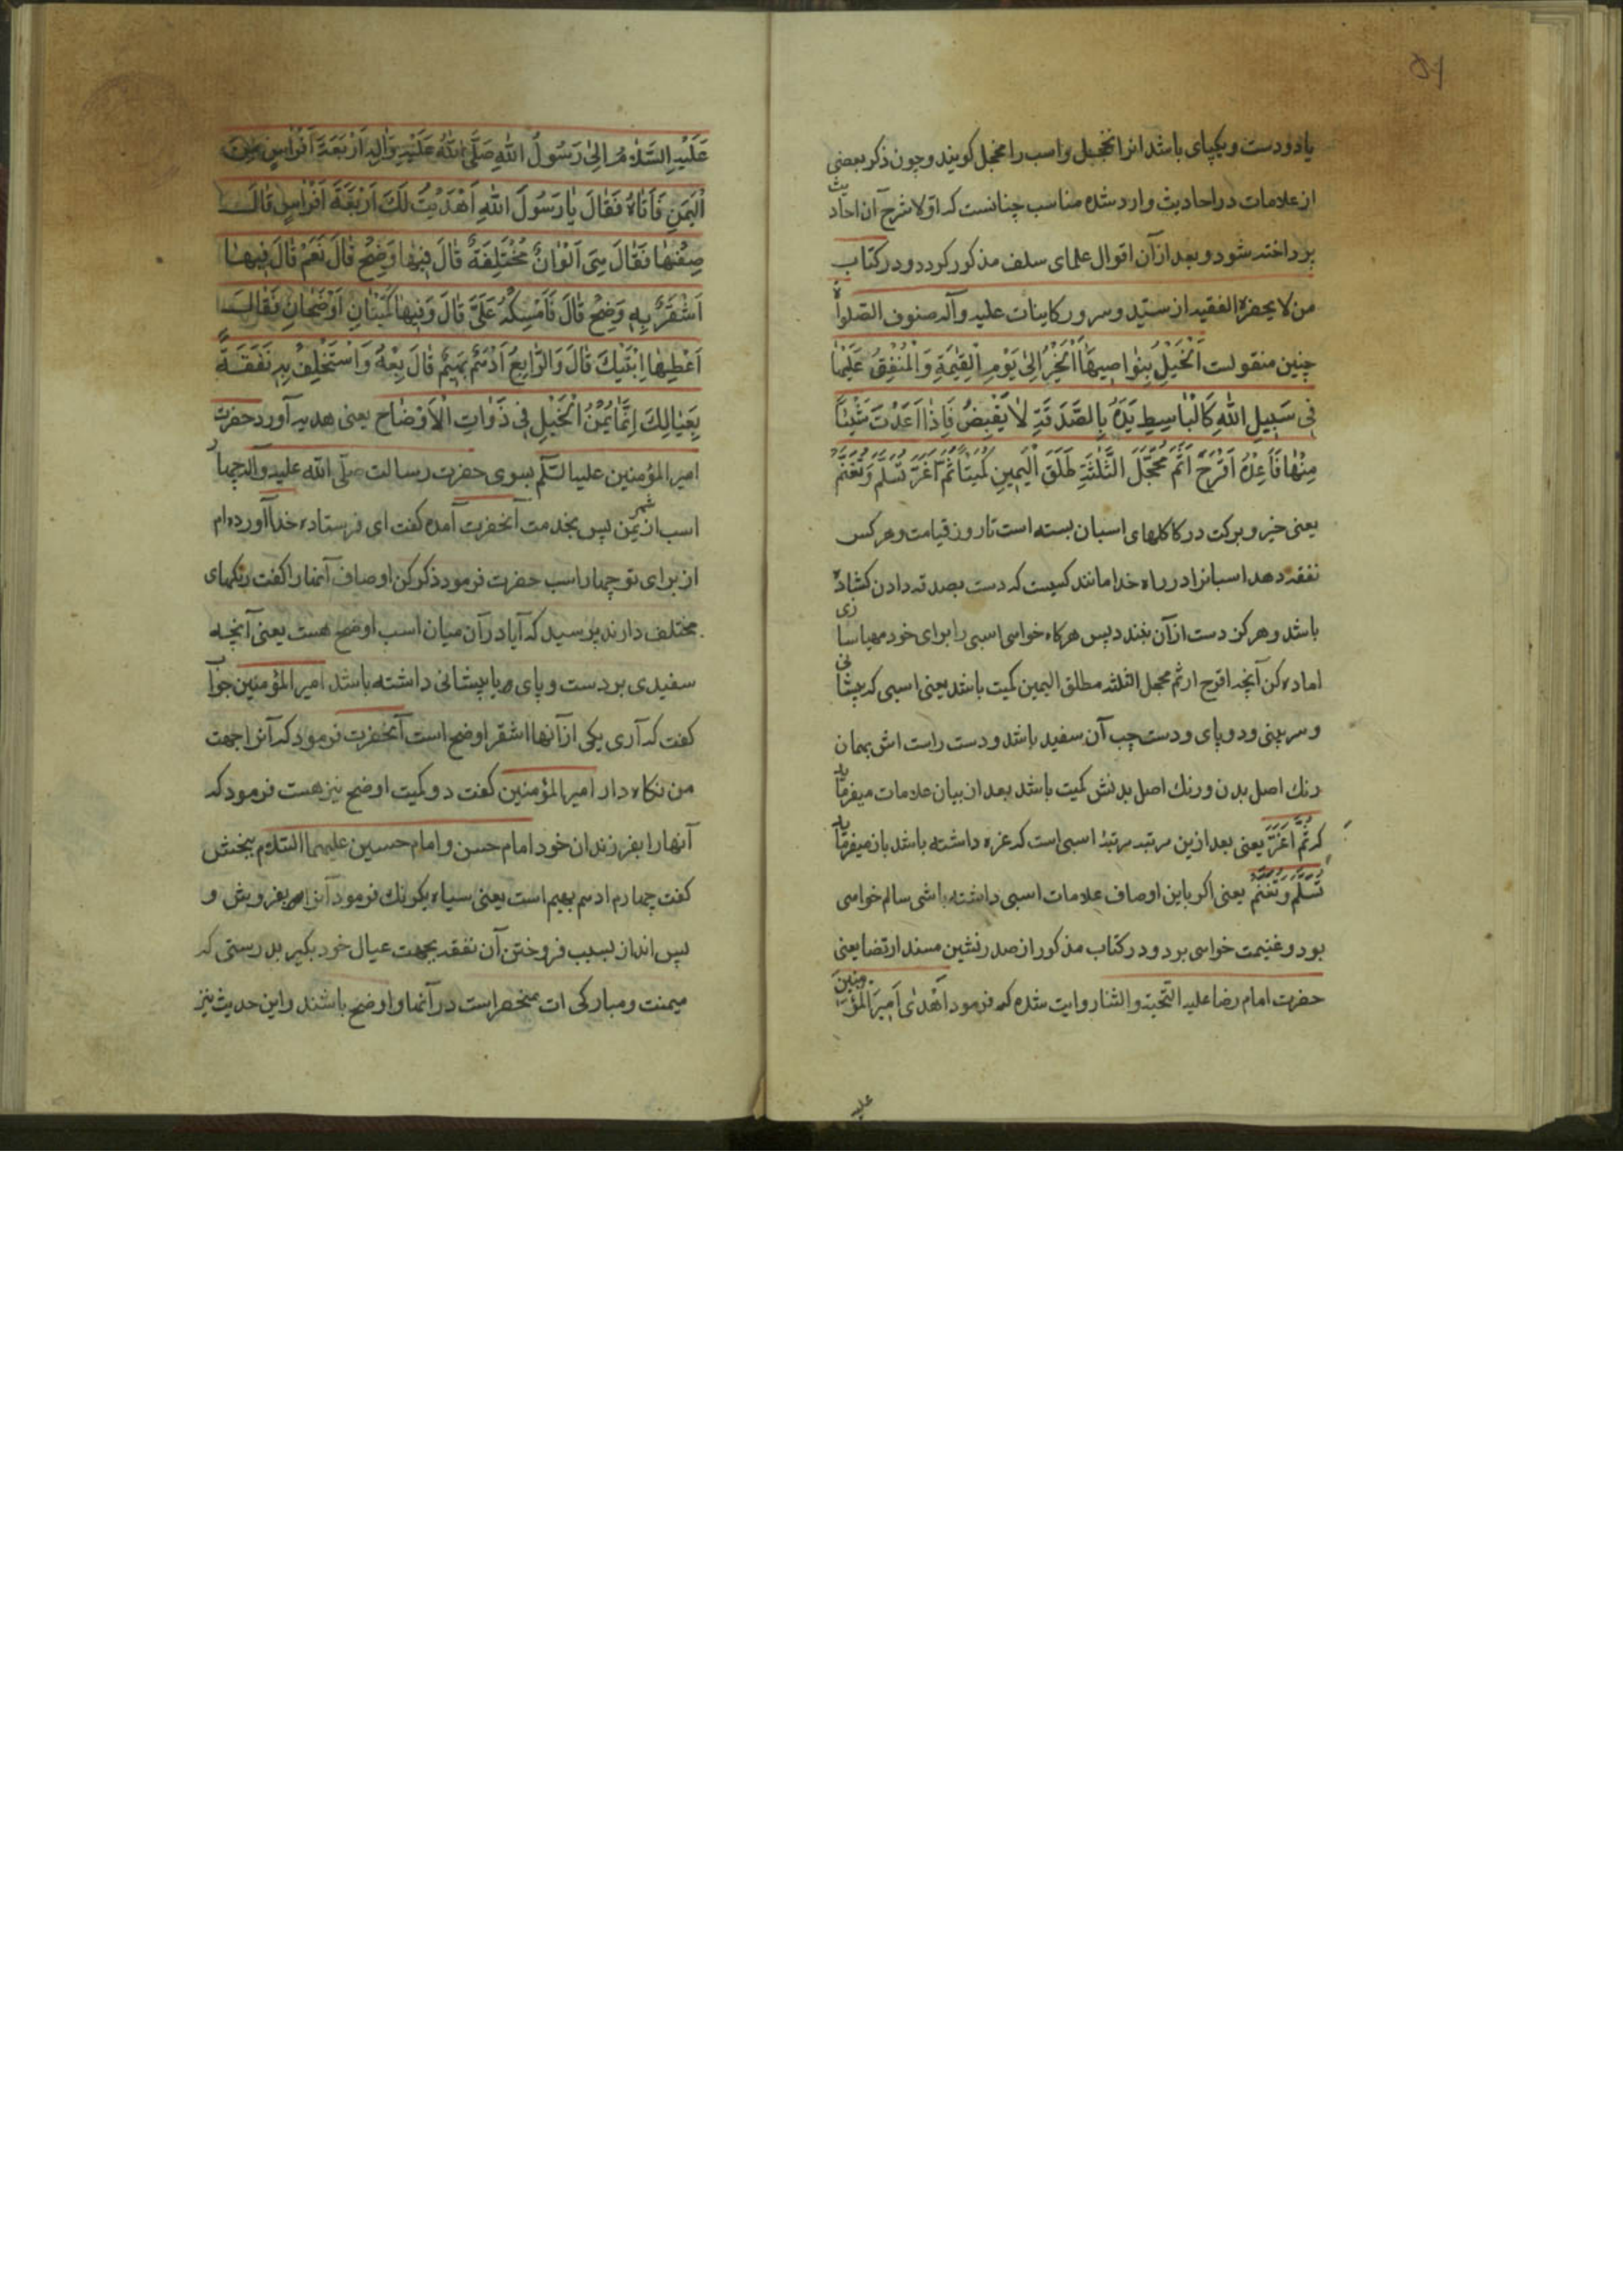 ۵۶
یا دو دست و یکپای باشد انرا تحجیل و اسب را محجل کویند و چون ذکر بعضی
از علامات در احادیث وارد شده مناسب چنانست که اوّلا شرح آن احادیث
پرداخته شود و بعد از آن اقوال علمای سلف مذکور کردد و در کتاب
من لا یحضره الفقیه از سیّد و سرور کاینات علیه و آله صنوف الصّلواة
چنین منقولست اَلْخَیْلُ بِنَواصِیهَا اَلْخَیْرُ اِلیٰ یَوْمِ الْقِیٰمَةِ وَالْمُنْفِقُ عَلَیْهٰا
فِی سَبِیلِ اللّٰهِ کَالْبٰاسِطِ یَدَهُ بِالصَّدَقَةِ لٰا یَقْبِضُ فَاِذٰا اَعْدَدْتَ شَیْئاً
مِنْهٰا فَاَعِدَّهُ اَقْرَحَ اَرْثَمَ مُحَجَّلَ الثَّلٰثَةِ طَلَقَ الْیَمِینِ کُمَیْتاً ثُمَّ اَغَرَّ تَسْلَمْ وَتَغْنَمْ
یعنی خیر و برکت در کاکلهای اسبان بسته است تا روز قیامت و هر کس
نفقه دهد اسبانرا در راه خدا مانند کسیست که دست بصدقه دادن کشاده
باشد و هرکز دست از آن نبندد پس هرکاه خواسی اسبی را برای خود مهیا سازی
اماده کن آنچه اقرح ارثم محجل الثلثه مطلق الیمین کمیت باشد یعنی اسبی که پیشانی
و سر بینی و دو پای و دست چپ آن سفید باشد و دست راست اش بهمان
رنک اصل بدن و رنک اصل بدنش کمیت باشد بعد از بیان علامات میفرماید
که ثُمَّ اَغَرَّ یعنی بعد ازین مرتبه مرتبهٔ اسبی است که غره داشته باشد باز میفرماید
تَسْلَمْ وَتَغْنَمْ یعنی اکر باین اوصاف علامات اسبی داشته باشی سالم خواسی
بود و غنیمت خواسی برد و در کتاب مذکور از صدر نشین مسند ارتضا یعنی
حضرت امام رضا علیه التحیة و الثنا روایت شده که فرمود اَهْدیٰ اَمِیرَ الْمُؤْمِنِینَ
علیه
عَلَیْهِ السَّلٰامُ اِلیٰ رَسُولِ اللّٰهِ صَلَّی اللّٰهُ عَلَیْهِ وَاٰلِهِ اَرْبَعَةَ اَفْرٰاسٍ مِنَ
الْیَمَنِ فَاَتٰاهُ فَقٰالَ یٰا رَسُولَ اللّٰهِ اَهْدَیْتُ لَکَ اَرْبَعَةَ اَفْرٰاسٍ قٰالَ
صِفْهٰا فَقٰالَ هِیَ اَلْوٰانٌ مُخْتَلِفَةٌ قٰالَ فِیهٰا وَضَحٌ قٰالَ نَعَمْ قٰالَ فِیهٰا
اَشْقَرُ بِهِ وَضَحٌ قٰالَ فَاَمْسِکْهُ عَلَیَّ قٰالَ وَفِیهٰا کُمَیْتٰانِ اَوْضَحٰانِ فَقٰالَ
اَعْطِهٰا اِبْنَیْکَ قٰالَ وَالرّٰابِعُ اَدْهَمُ بَهِیمٌ قٰالَ بِعْهُ وَاسْتَخْلِفْ بِهِ نَفَقَةً
بِعِیٰالِکَ اِنَّمٰا یُمْنُ الْخَیْلِ فِی ذَوٰاتِ الْاَوْضٰاحِ یعنی هدیه آورد حضرت
امیر المؤمنین علیه السّلم بسوی حضرت رسالت صلّی اللّه علیه و آله چهار
اسب از یمن پس بخدمت آنحضرت آمده کفت ای فرستاده خدا آورده ام
از برای تو چهار اسب حضرت فرمود ذکر کن اوصاف آنها را کفت رنکهای
مختلف دارند پرسید که آیا در آن میان اسب اوضح هست یعنی آنچه
سفیدی بر دست و پای و یا پیشانی داشته باشد امیر المؤمنین جواب
کفت که آری یکی از آنها اشقر اوضح است آنحضرت فرمود که آنرا جهت
من نکاه دار امیر المؤمنین کفت دو کمیت اوضح نیز هست فرمود که
آنها را بفرزندان خود امام حسن و امام حسین علیهما السّلام ببخش
کفت چهارم ادهم بهیم است یعنی سیاه یکرنک فرمود آنرا بفروش و
پس انداز بسبب فروختن آن نفقه بجهت عیال خود بکیر بدرستی که
میمنت و مبارکی ات منحصر است در آنها و اوضح باشند و این حدیث نیز